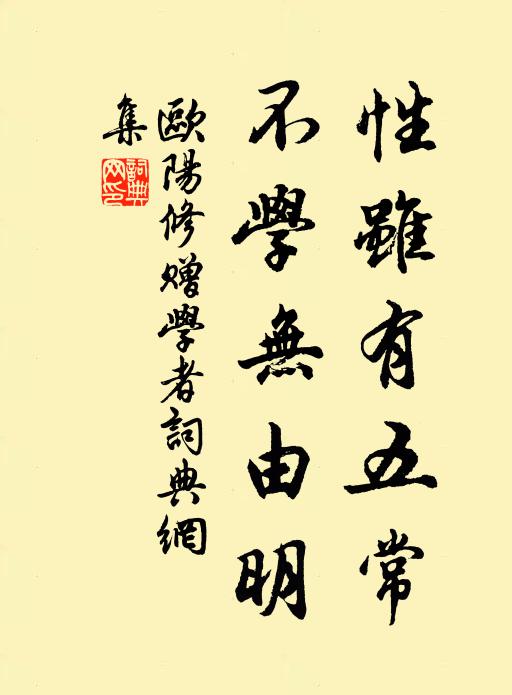 性雖有五常
不學無由明
歐陽修贈學者詞典網
集
詞典
网印